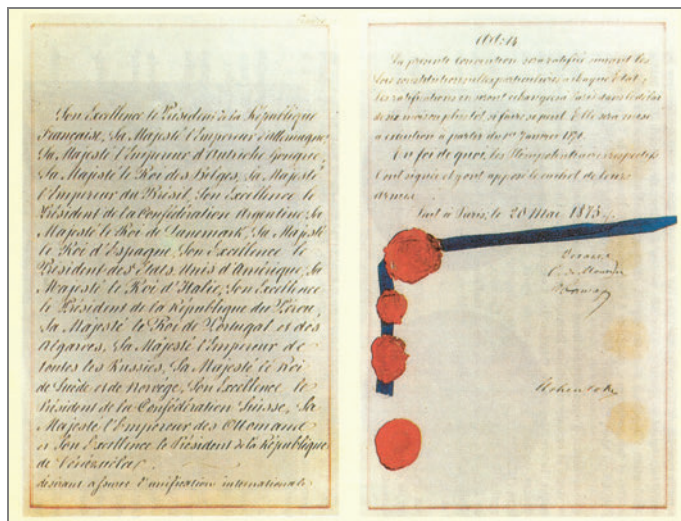 Son Excellence le Président de la République
Française, Sa Majesté l'Empereur d'Allemagne,
Sa Majesté l'Empereur d'Autriche Hongrie,
Sa Majesté le Roi des Belges, Sa Majesté
l'Empereur du Brésil, Son Excellence le
Président de la Confédération Argentine, Sa
Majesté le Roi de Danemark, Sa Majesté
le Roi d'Espagne, Son Excellence le
Président des Etats-Unis d'Amérique, Sa
Majesté le Roi d'Italie, Son Excellence
le Président de la République du Pérou,
Sa Majesté le Roi de Portugal et des
Algarves, Sa Majesté l'Empereur de
toutes les Russies, Sa Majesté le Roi
de Suède et de Norvège, Son Excellence le
Président de la Confédération Suisse, Sa
Majesté l'Empereur des Ottomans
et Son Excellence le Président de la République
de Vénézuéla,
désirant assurer l'unification internationale
Art. 14
La présente Convention sera ratifiée suivant les
lois constitutionnelles particulières à chaque Etat;
les ratifications en seront échangées à Paris dans le délai
de six mois ou plus tôt si faire se peut. Elle sera mise
à exécution à partir du 1er Janvier 1876.
En foi de quoi, les Plénipotentiaires respectifs
l'ont signée et y ont apposé le cachet de leurs
armes.
Fait à Paris, le 20 Mai 1875.
Decazes
Hohenlohe